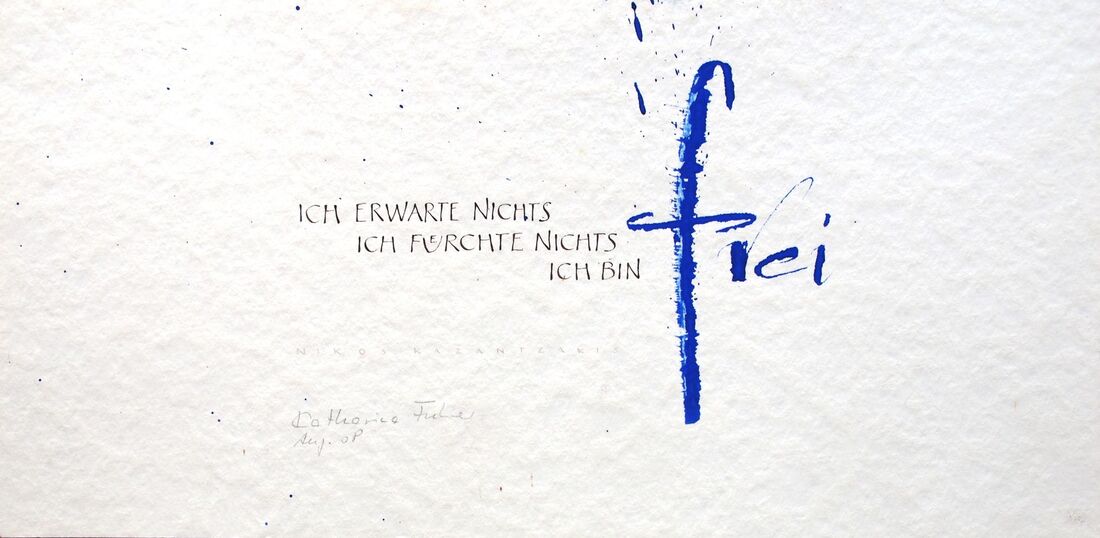 ICH ERWARTE NICHTS
ICH FUERCHTE NICHTS
ICH BIN frei
NIKOS KAZANTZAKIS
Katharina
Aug.